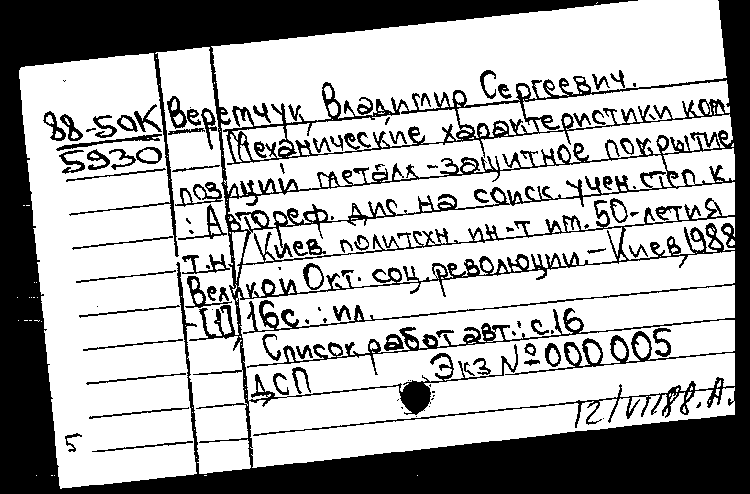 88-50К Веремчук Владимир Сергеевич.
5930 Механические характеристики ком-
позиций металл-защитное покрытие
: Автореф. дис. на соиск. учен. степ. к.
т.н. / Киев. политехн. ин-т им. 50-летия
Великой Окт. соц. революции. – Киев, 1988
-[1], 16с. : ил.
Список работ авт.: с.16
ДСП Экз № 000005
12/VII88. А.
5